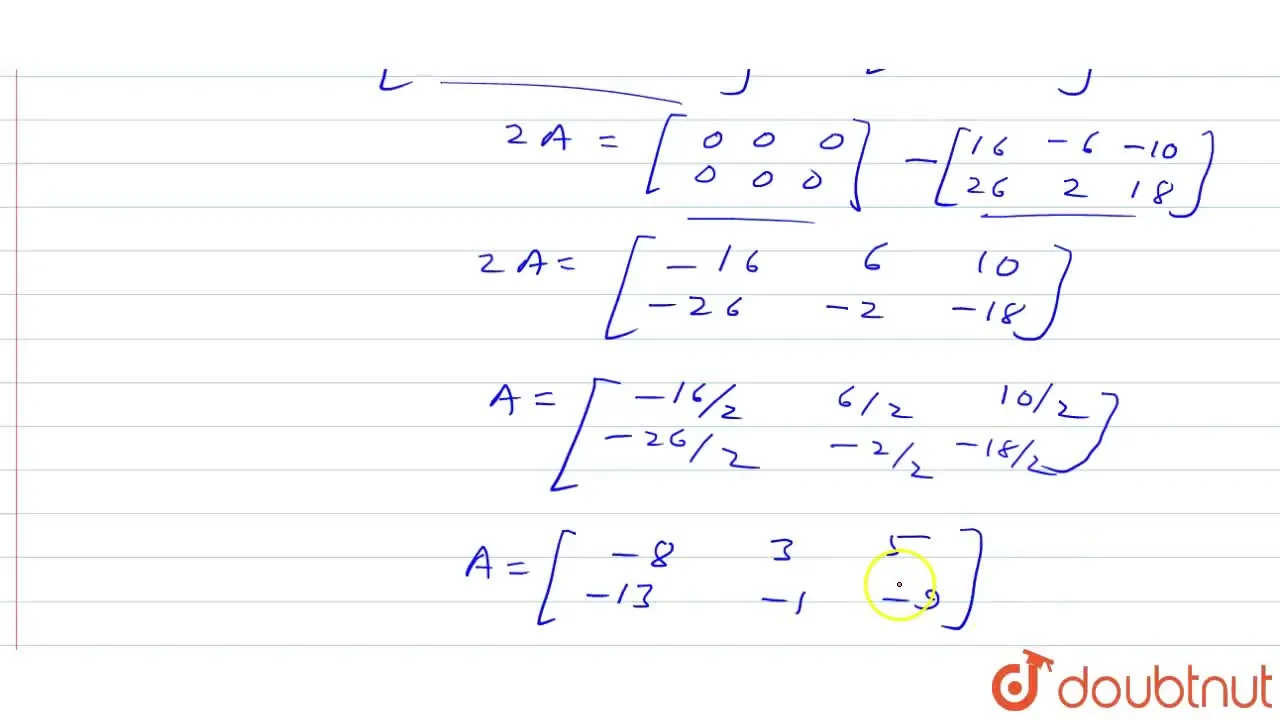 2A = [ 0 0 0 ] - [ 16 -6 -10 ]
[ 0 0 0 ] [ 26 2 18 ]
2A = [ -16 6 10 ]
[ -26 -2 -18 ]
A = [ -16/2 6/2 10/2 ]
[ -26/2 -2/2 -18/2 ]
A = [ -8 3 5 ]
[ -13 -1 -9 ]
doubtnut